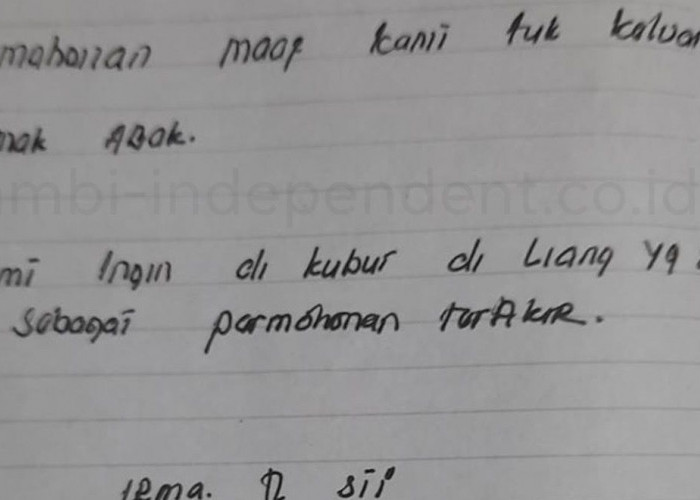 mohonan maaf kami tuk keluar
mak ABak.
mbi-independent.co.id
mi Ingin di kubur di Liang yg
sebagai permohonan terAkIR.